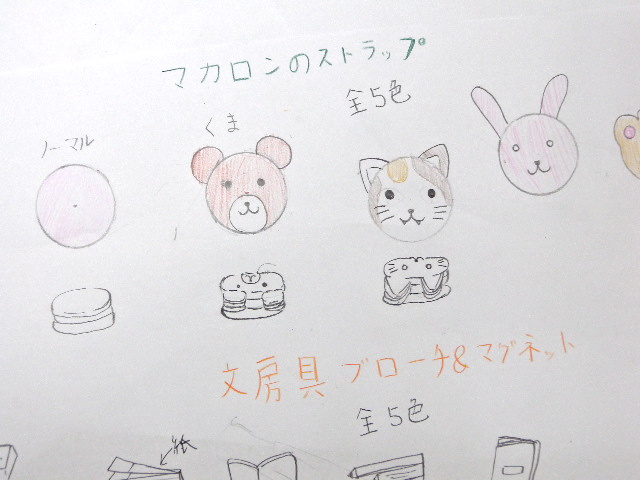 マカロンのストラップ
全5色
ノーマル
くま
文房具 ブローチ&マグネット
全5色
紙